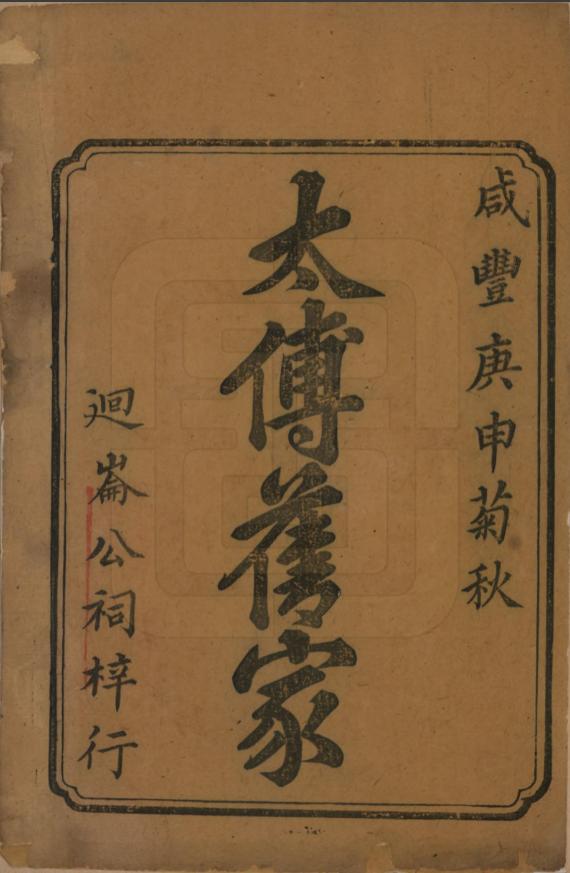 咸豐庚申菊秋
太傅舊家
迴崙公祠梓行